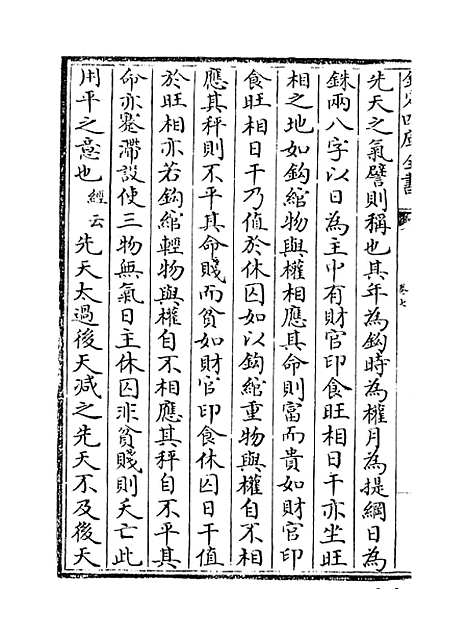 欽定四庫全書
卷七
先天之氣譬則稱也其年為鈎時為權月為提綱日為
銖兩八字以日為主中有財官印食旺相日干亦坐旺
相之地如鈎綰物與權相應其命則富而貴如財官印
食旺相日干乃值於休囚如以鈎綰重物與權自不相
應其秤則不平其命賤而貧如財官印食休囚日干值
於旺相亦若鈎綰輕物與權自不相應其秤自不平其
命亦蹇滯設使三物無氣日主休囚非貧賤則夭亡此
用平之意也經云先天太過後天减之先天不及後天